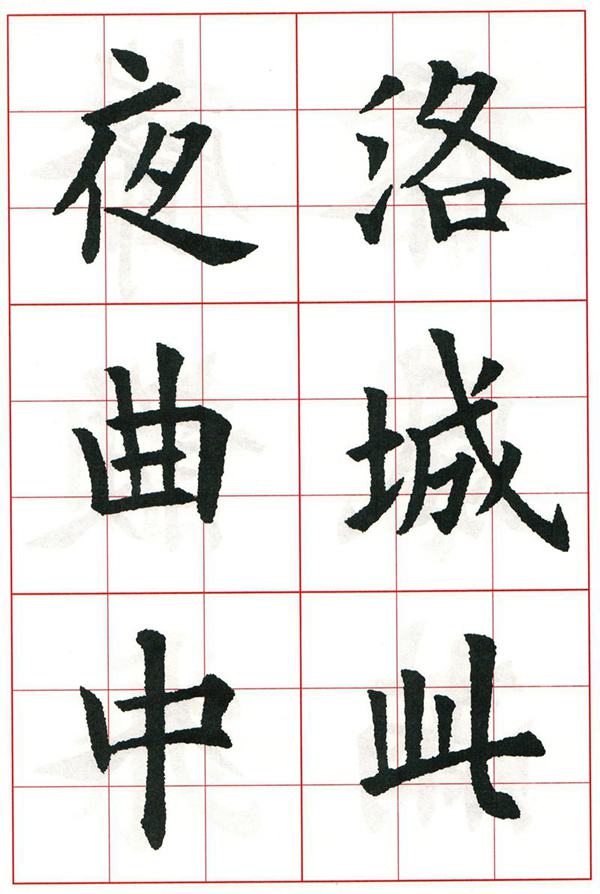 洛城此
夜曲中